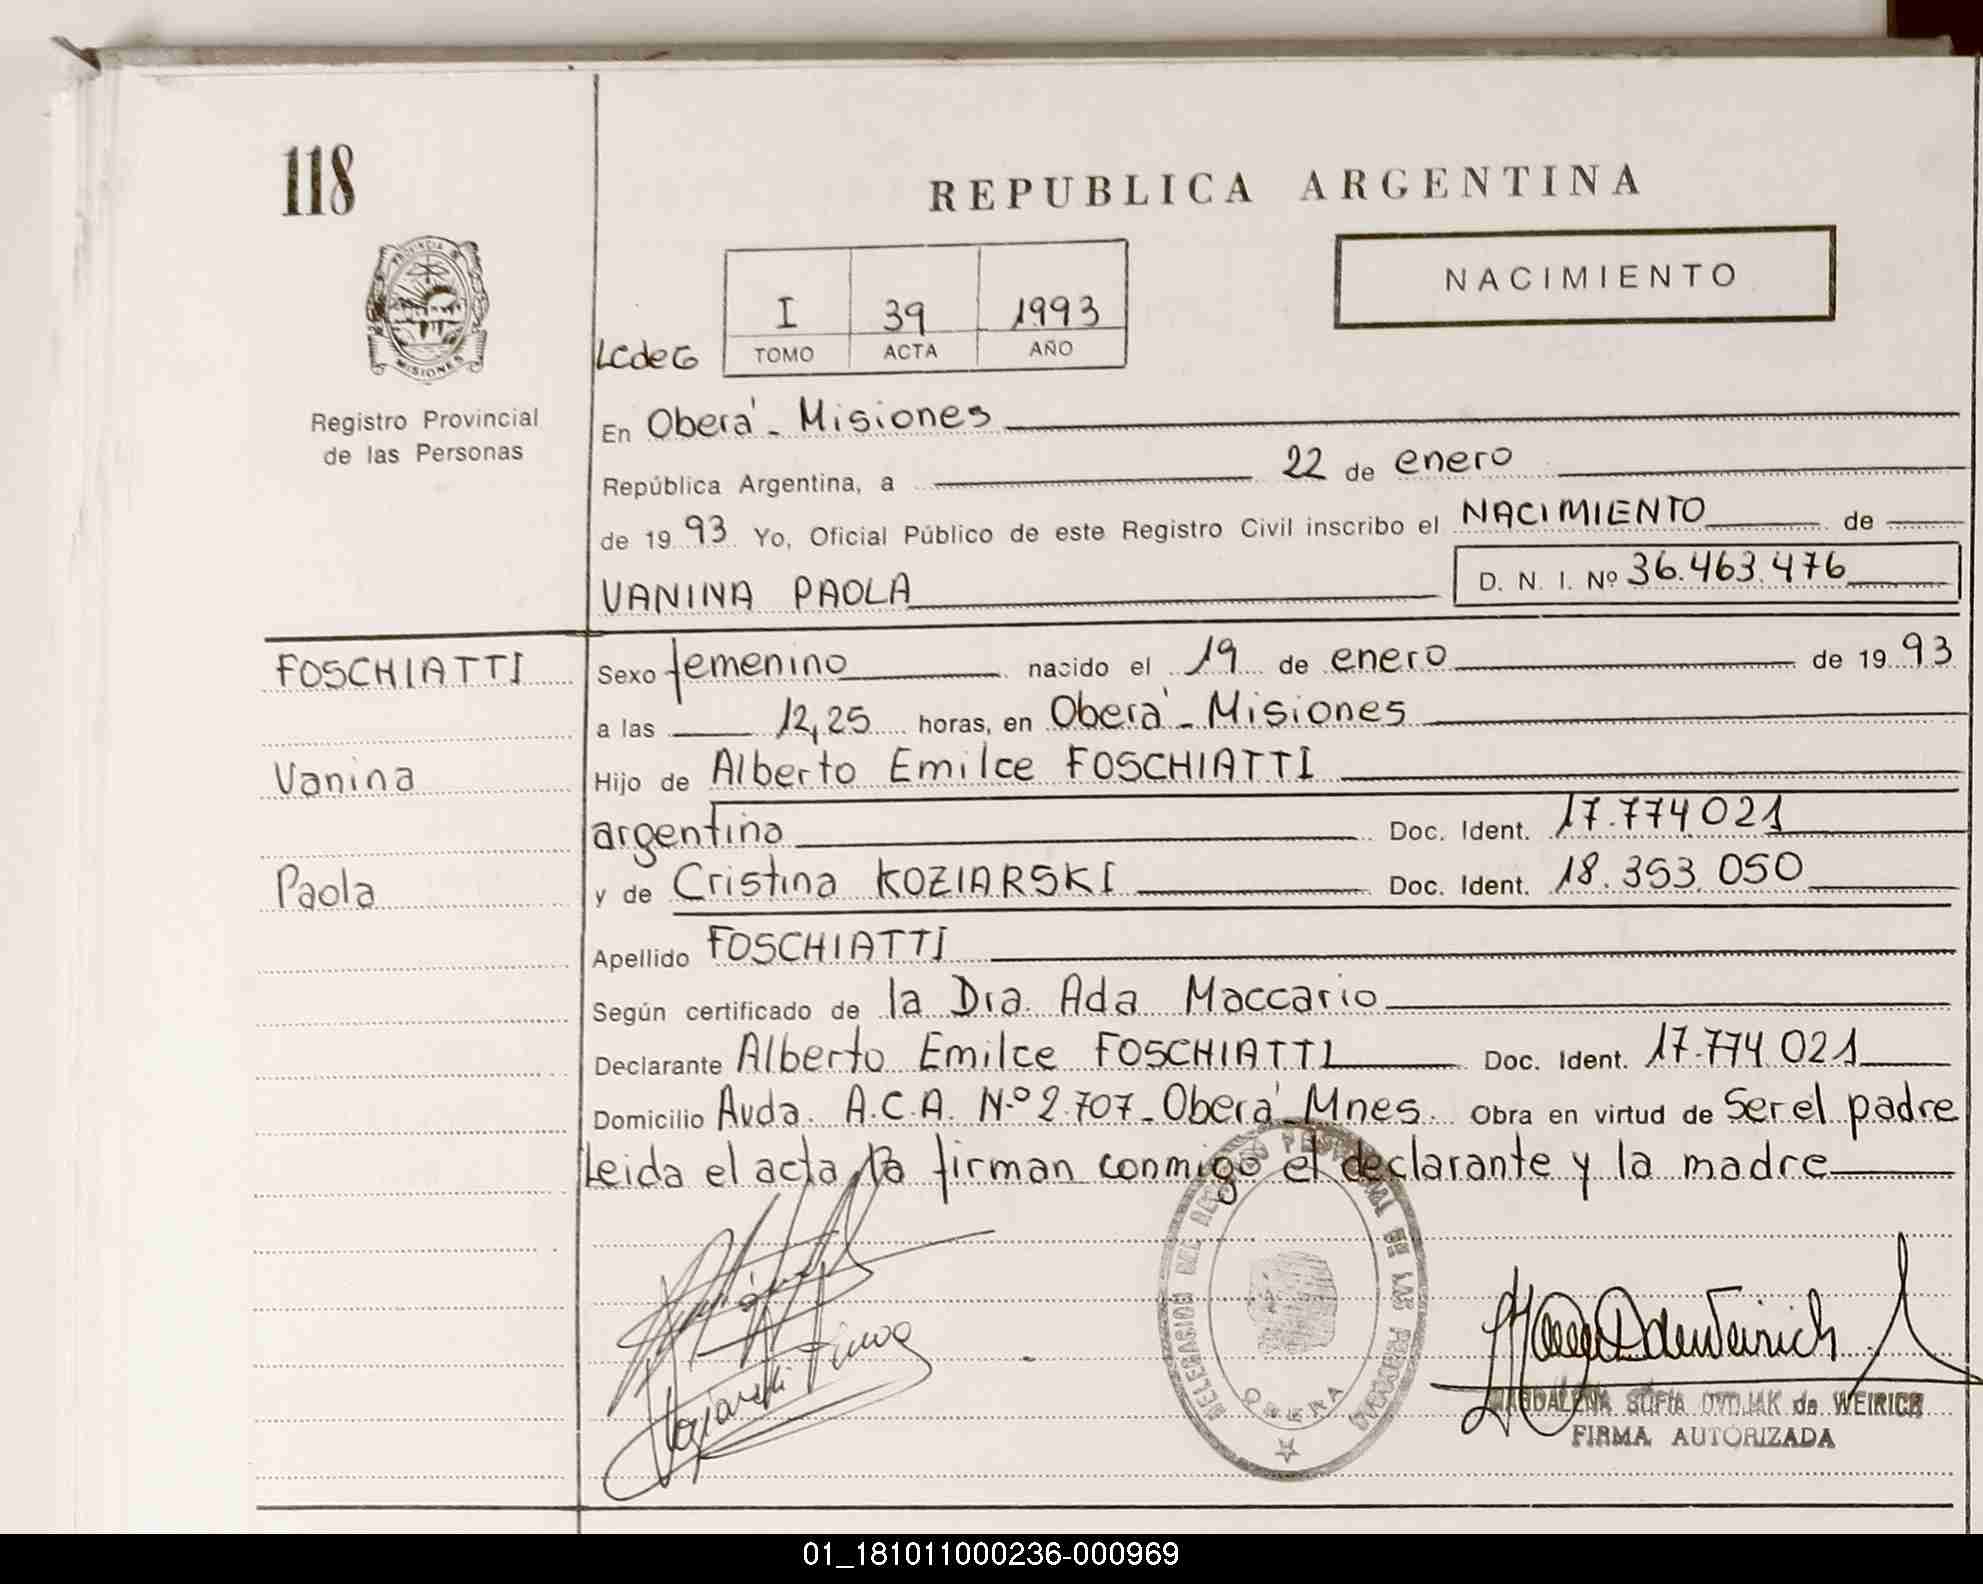 118
REPUBLICA ARGENTINA
PROVINCIA DE
MISIONES
NACIMIENTO
I 39 1993
LCdeG TOMO ACTA AÑO
Registro Provincial
de las Personas
En Oberá - Misiones
República Argentina, a 22 de enero
de 1993 Yo, Oficial Público de este Registro Civil inscribo el NACIMIENTO de
VANINA PAOLA D. N. I. Nº 36.463.476
FOSCHIATTI
Vanina
Paola
Sexo femenino nacido el 19 de enero de 1993
a las 12,25 horas, en Oberá - Misiones
Hijo de Alberto Emilce FOSCHIATTI
argentino Doc. Ident. 17.774021
y de Cristina KOZIARSKI Doc. Ident. 18.353.050
Apellido FOSCHIATTI
Según certificado de la Dra. Ada Maccario
Declarante Alberto Emilce FOSCHIATTI Doc. Ident. 17.774.021
Domicilio Avda. A.C.A. N.º 2.707 - Oberá Mnes. Obra en virtud de Ser el padre
Leida el acta, la firman conmigo el declarante y la madre
DELEGACION DEL REGISTRO PROVINCIAL DE LAS PERSONAS
OBERA
MAGDALENA SOFIA DVOJAK de WEIRICH
FIRMA AUTORIZADA
01_181011000236-000969